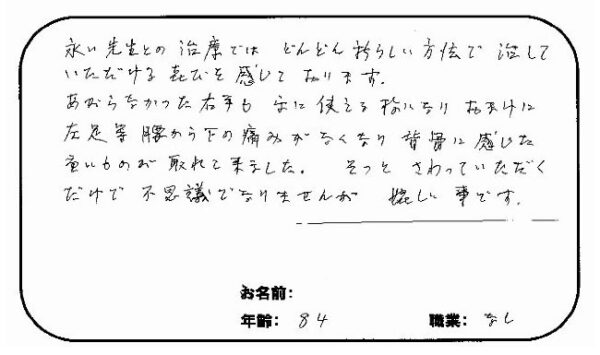 永い先生との治療では どんどん新らしい方法で 治して
いただける喜びを感じて おります。
あがらなかった右手も 楽に使える様になり おまけに
左足等 腰から下の痛みがなくなり 背骨に感じた
重いものが 取れて来ました。 そっと さわっていただく
だけで 不思議でなりませんが 嬉しい事です。
お名前:
年齢: 84 職業: なし